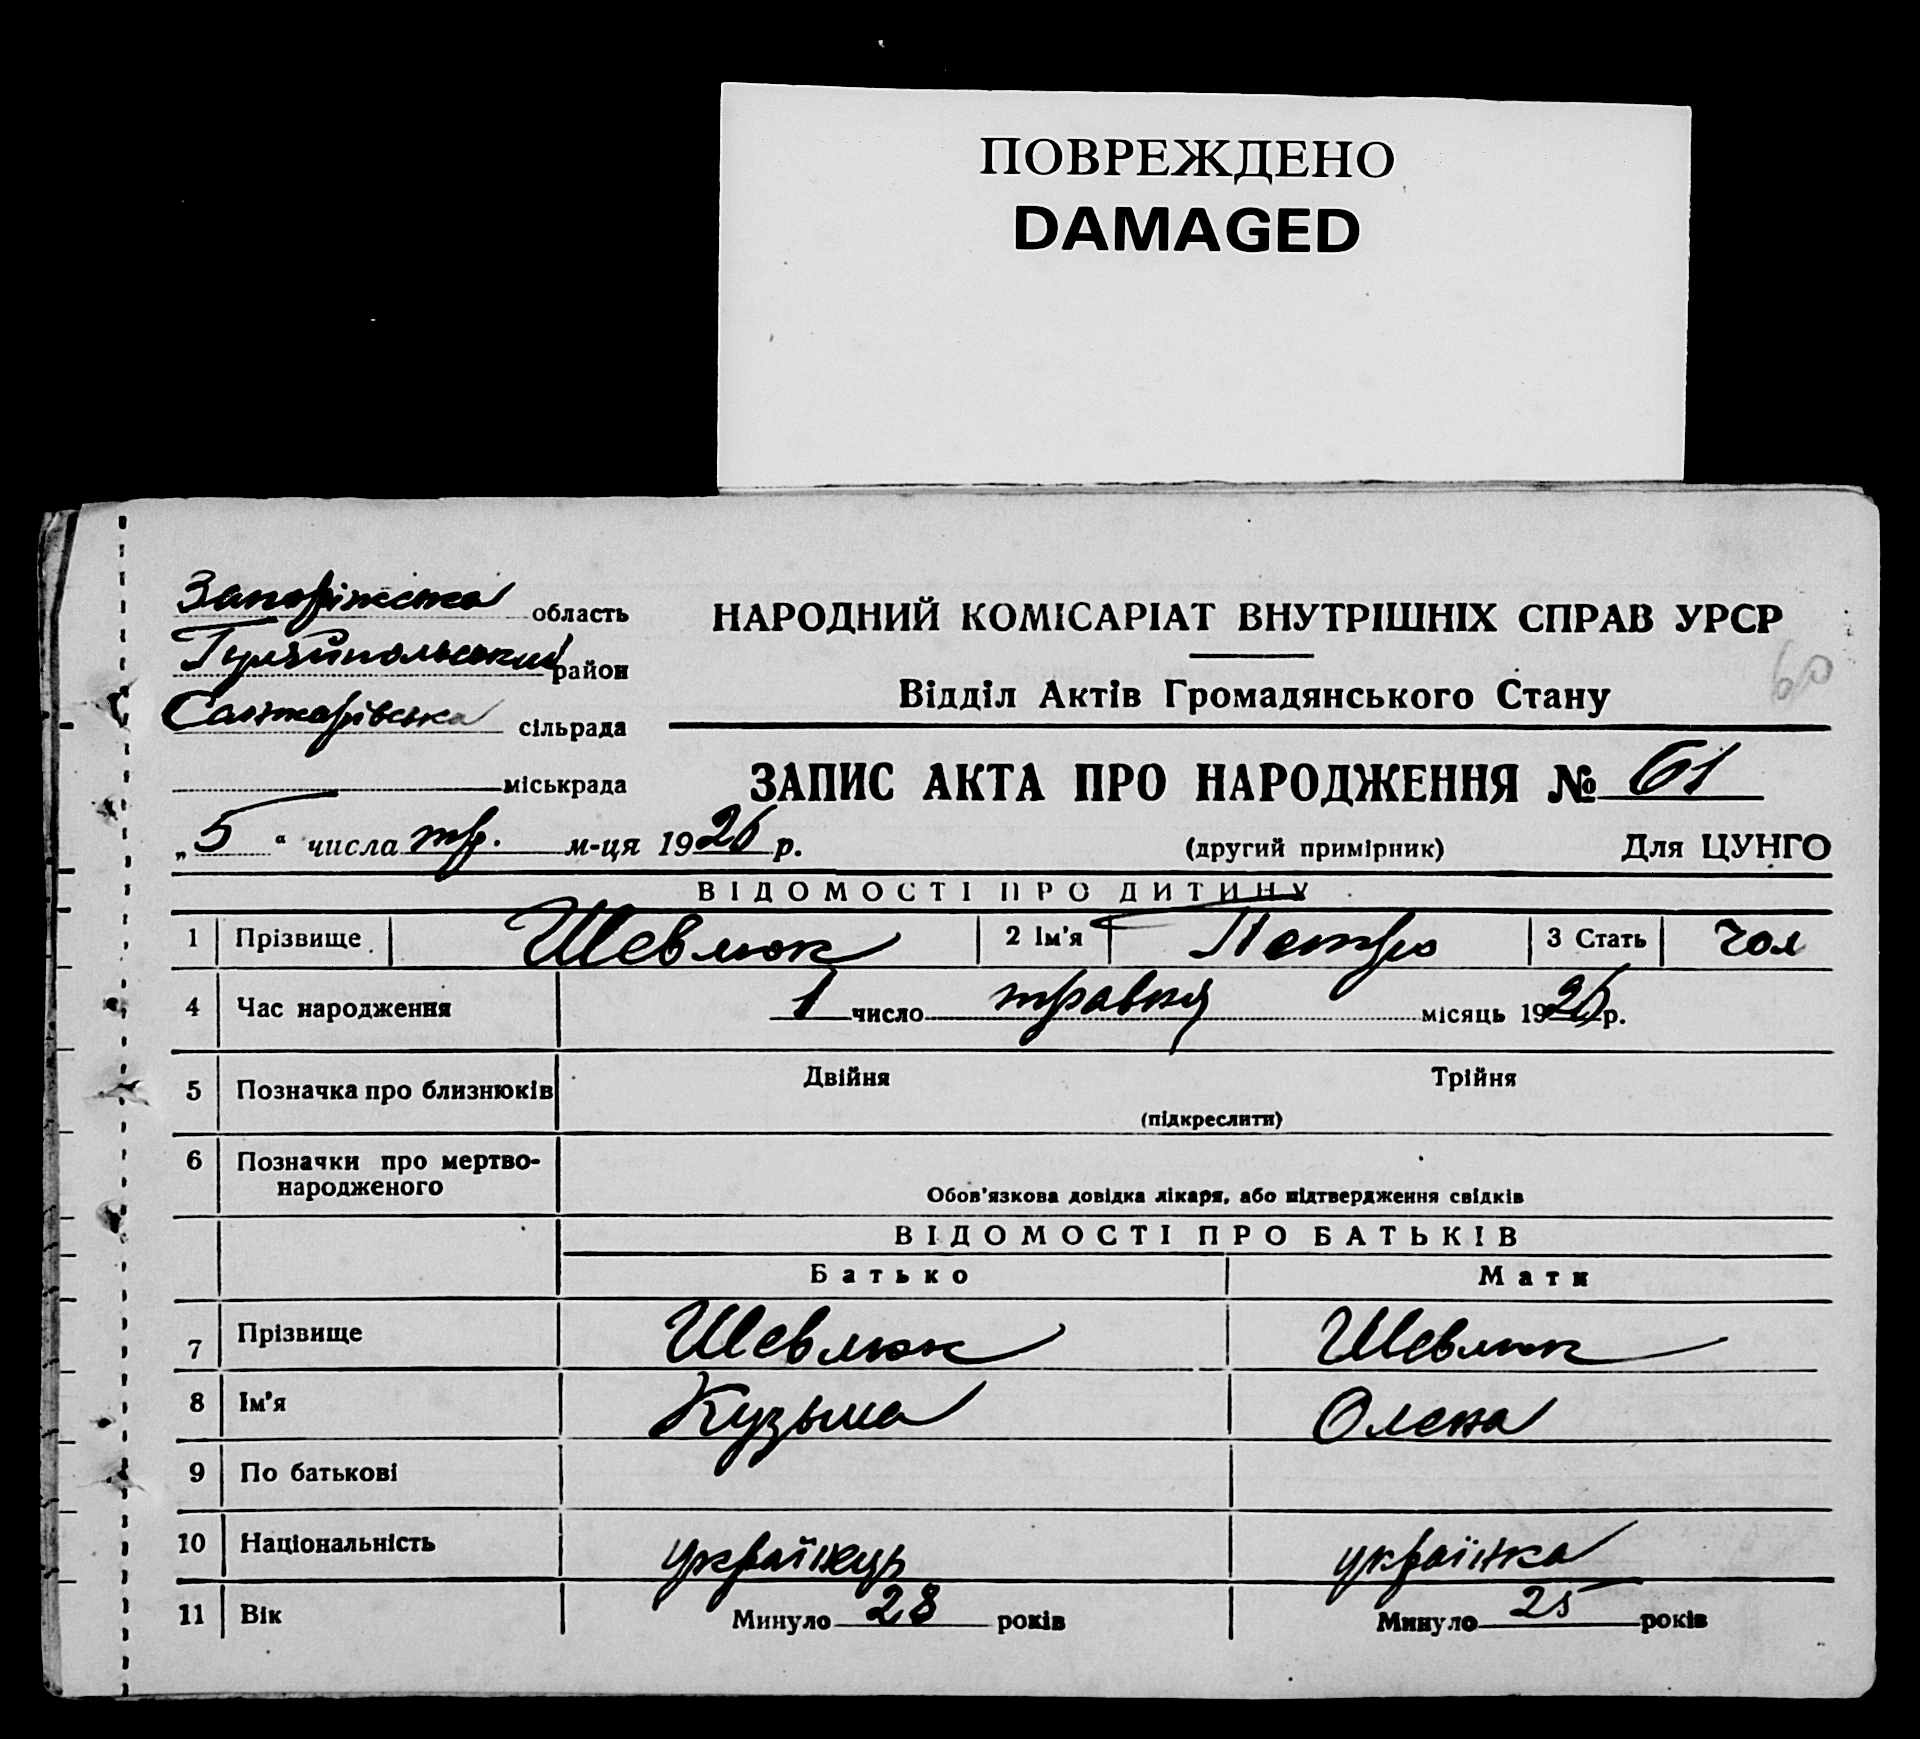 ПОВРЕЖДЕНО
DAMAGED
Запоріжська область
Гуляйпольський район
Санжарівська сільрада
міськрада
„5“ числа тр. м-ця 1926 р.
НАРОДНИЙ КОМІСАРІАТ ВНУТРІШНІХ СПРАВ УРСР
60
Відділ Актів Громадянського Стану
ЗАПИС АКТА ПРО НАРОДЖЕННЯ № 61
(другий примірник) Для ЦУНГО
ВІДОМОСТІ ПРО ДИТИНУ
1 Прізвище Шевлюк 2 Ім'я Петро 3 Стать Чол
4 Час народження 1 число травня місяць 1926 р.
5 Позначка про близнюків Двійня Трійня
(підкреслити)
6 Позначки про мертво-
народженого
Обов'язкова довідка лікаря, або підтвердження свідків
ВІДОМОСТІ ПРО БАТЬКІВ
Батько Мати
7 Прізвище Шевлюк Шевлюк
8 Ім'я Кузьма Олена
9 По батькові
10 Національність українець українка
11 Вік Минуло 28 років Минуло 25 років